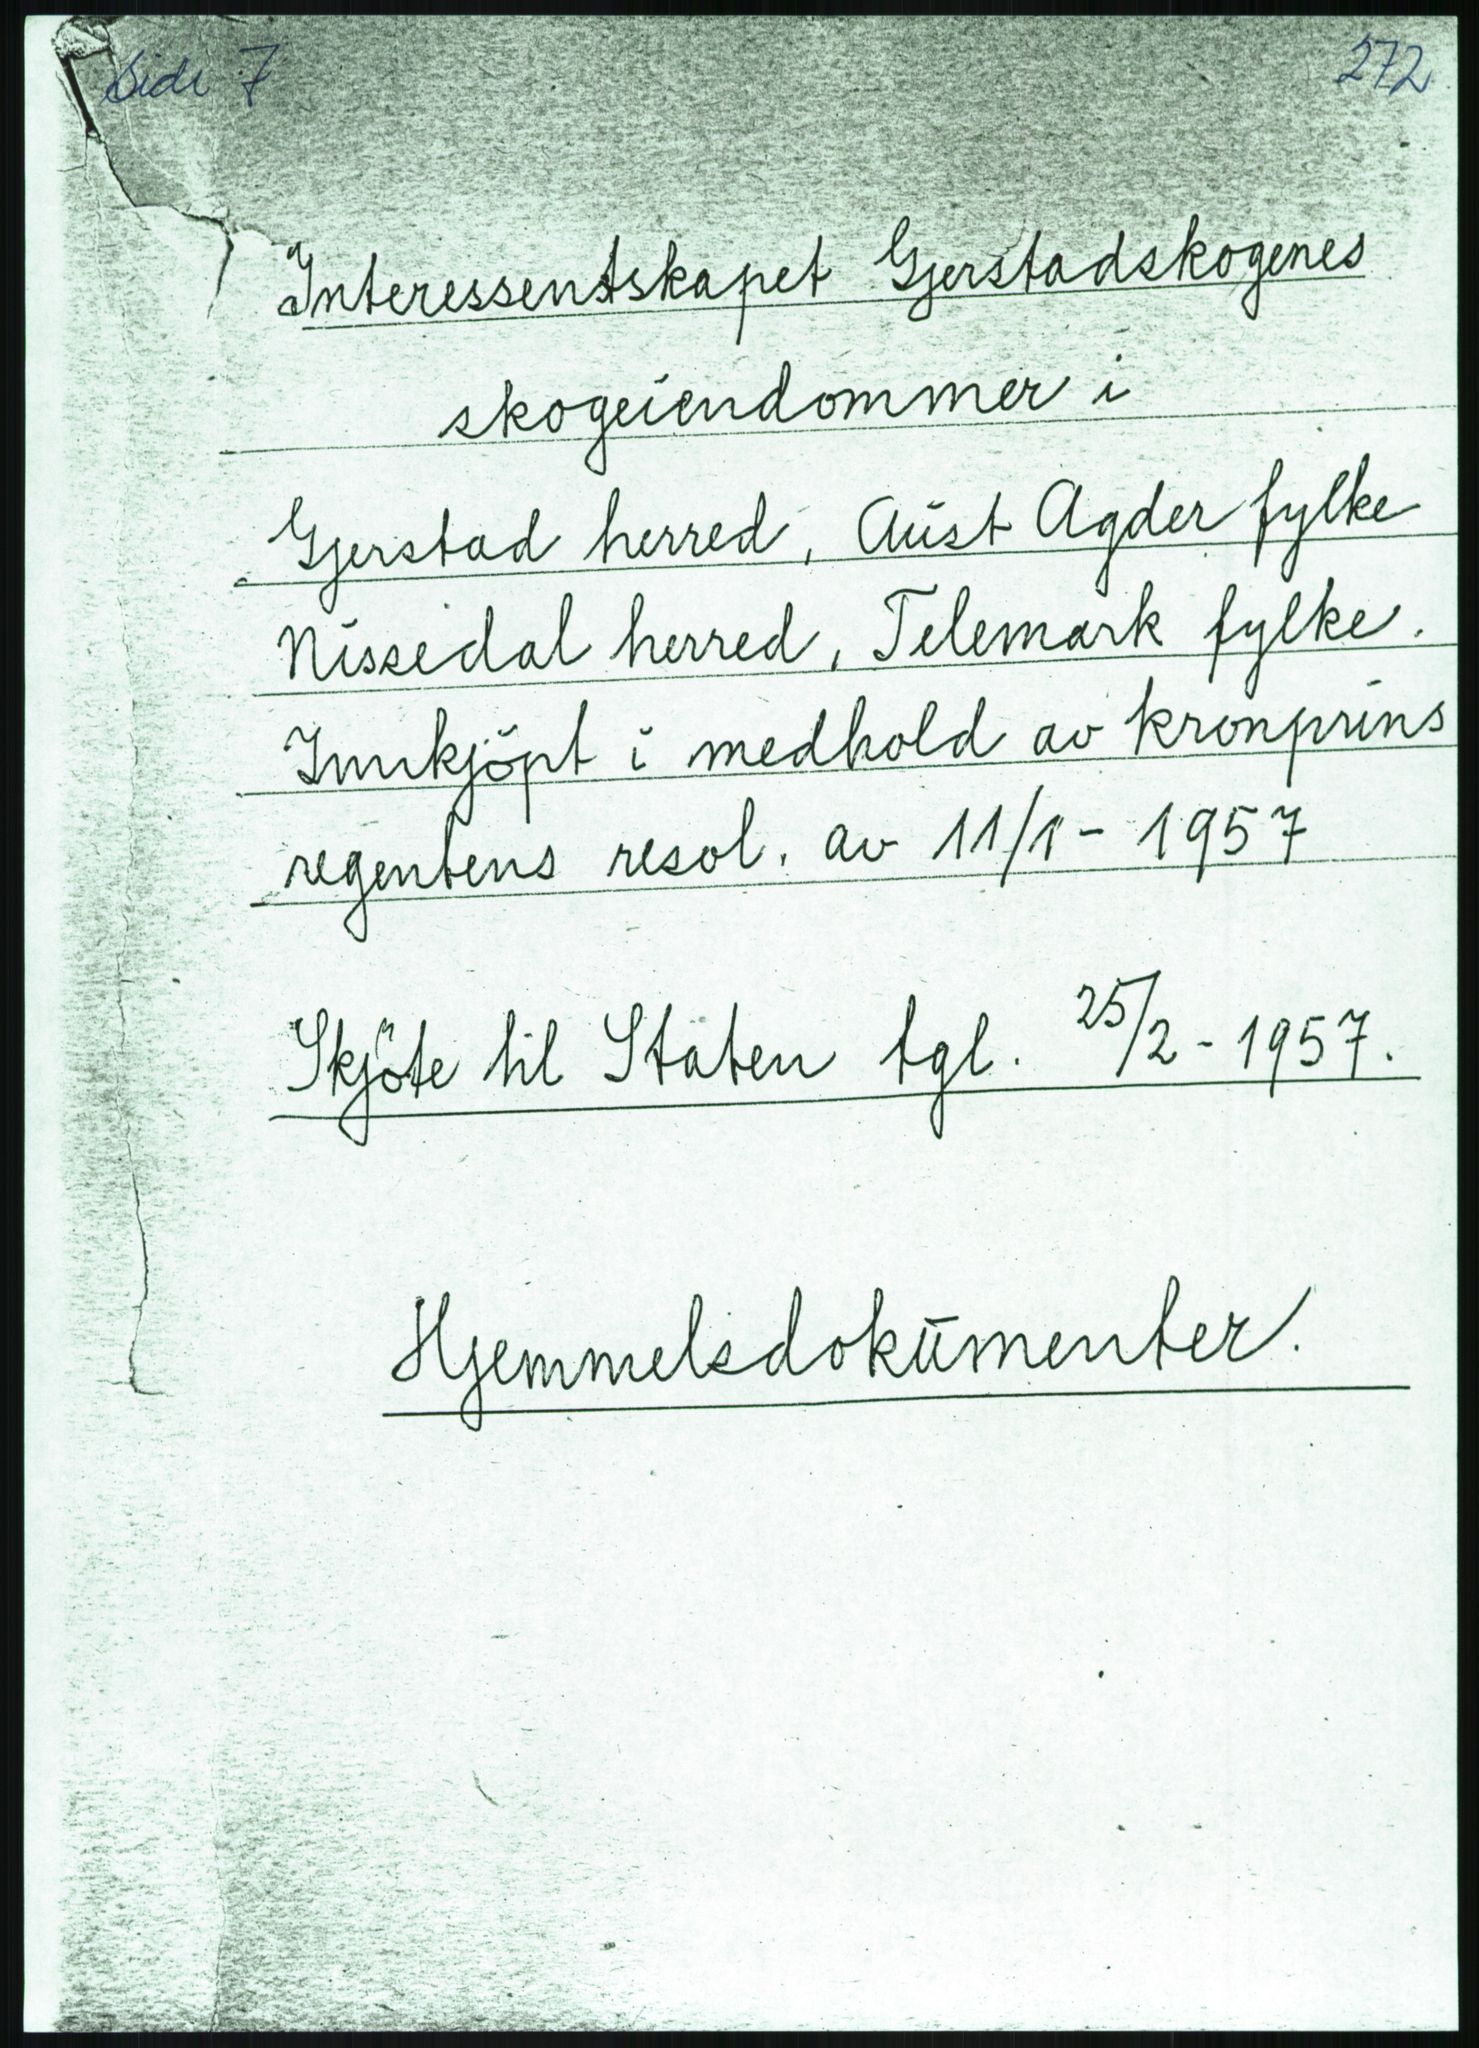 Side 7
272
Interessentskapet Gjerstadskogenes
skogeiendommer i
Gjerstad herred, Aust Agder fylke
Nissedal herred, Telemark fylke.
Innkjöpt i medhold av kronprins
regentens resol. av 11/1 - 1957
Skjöte til Staten tgl. 25/2 - 1957.
Hjemmelsdokumenter.